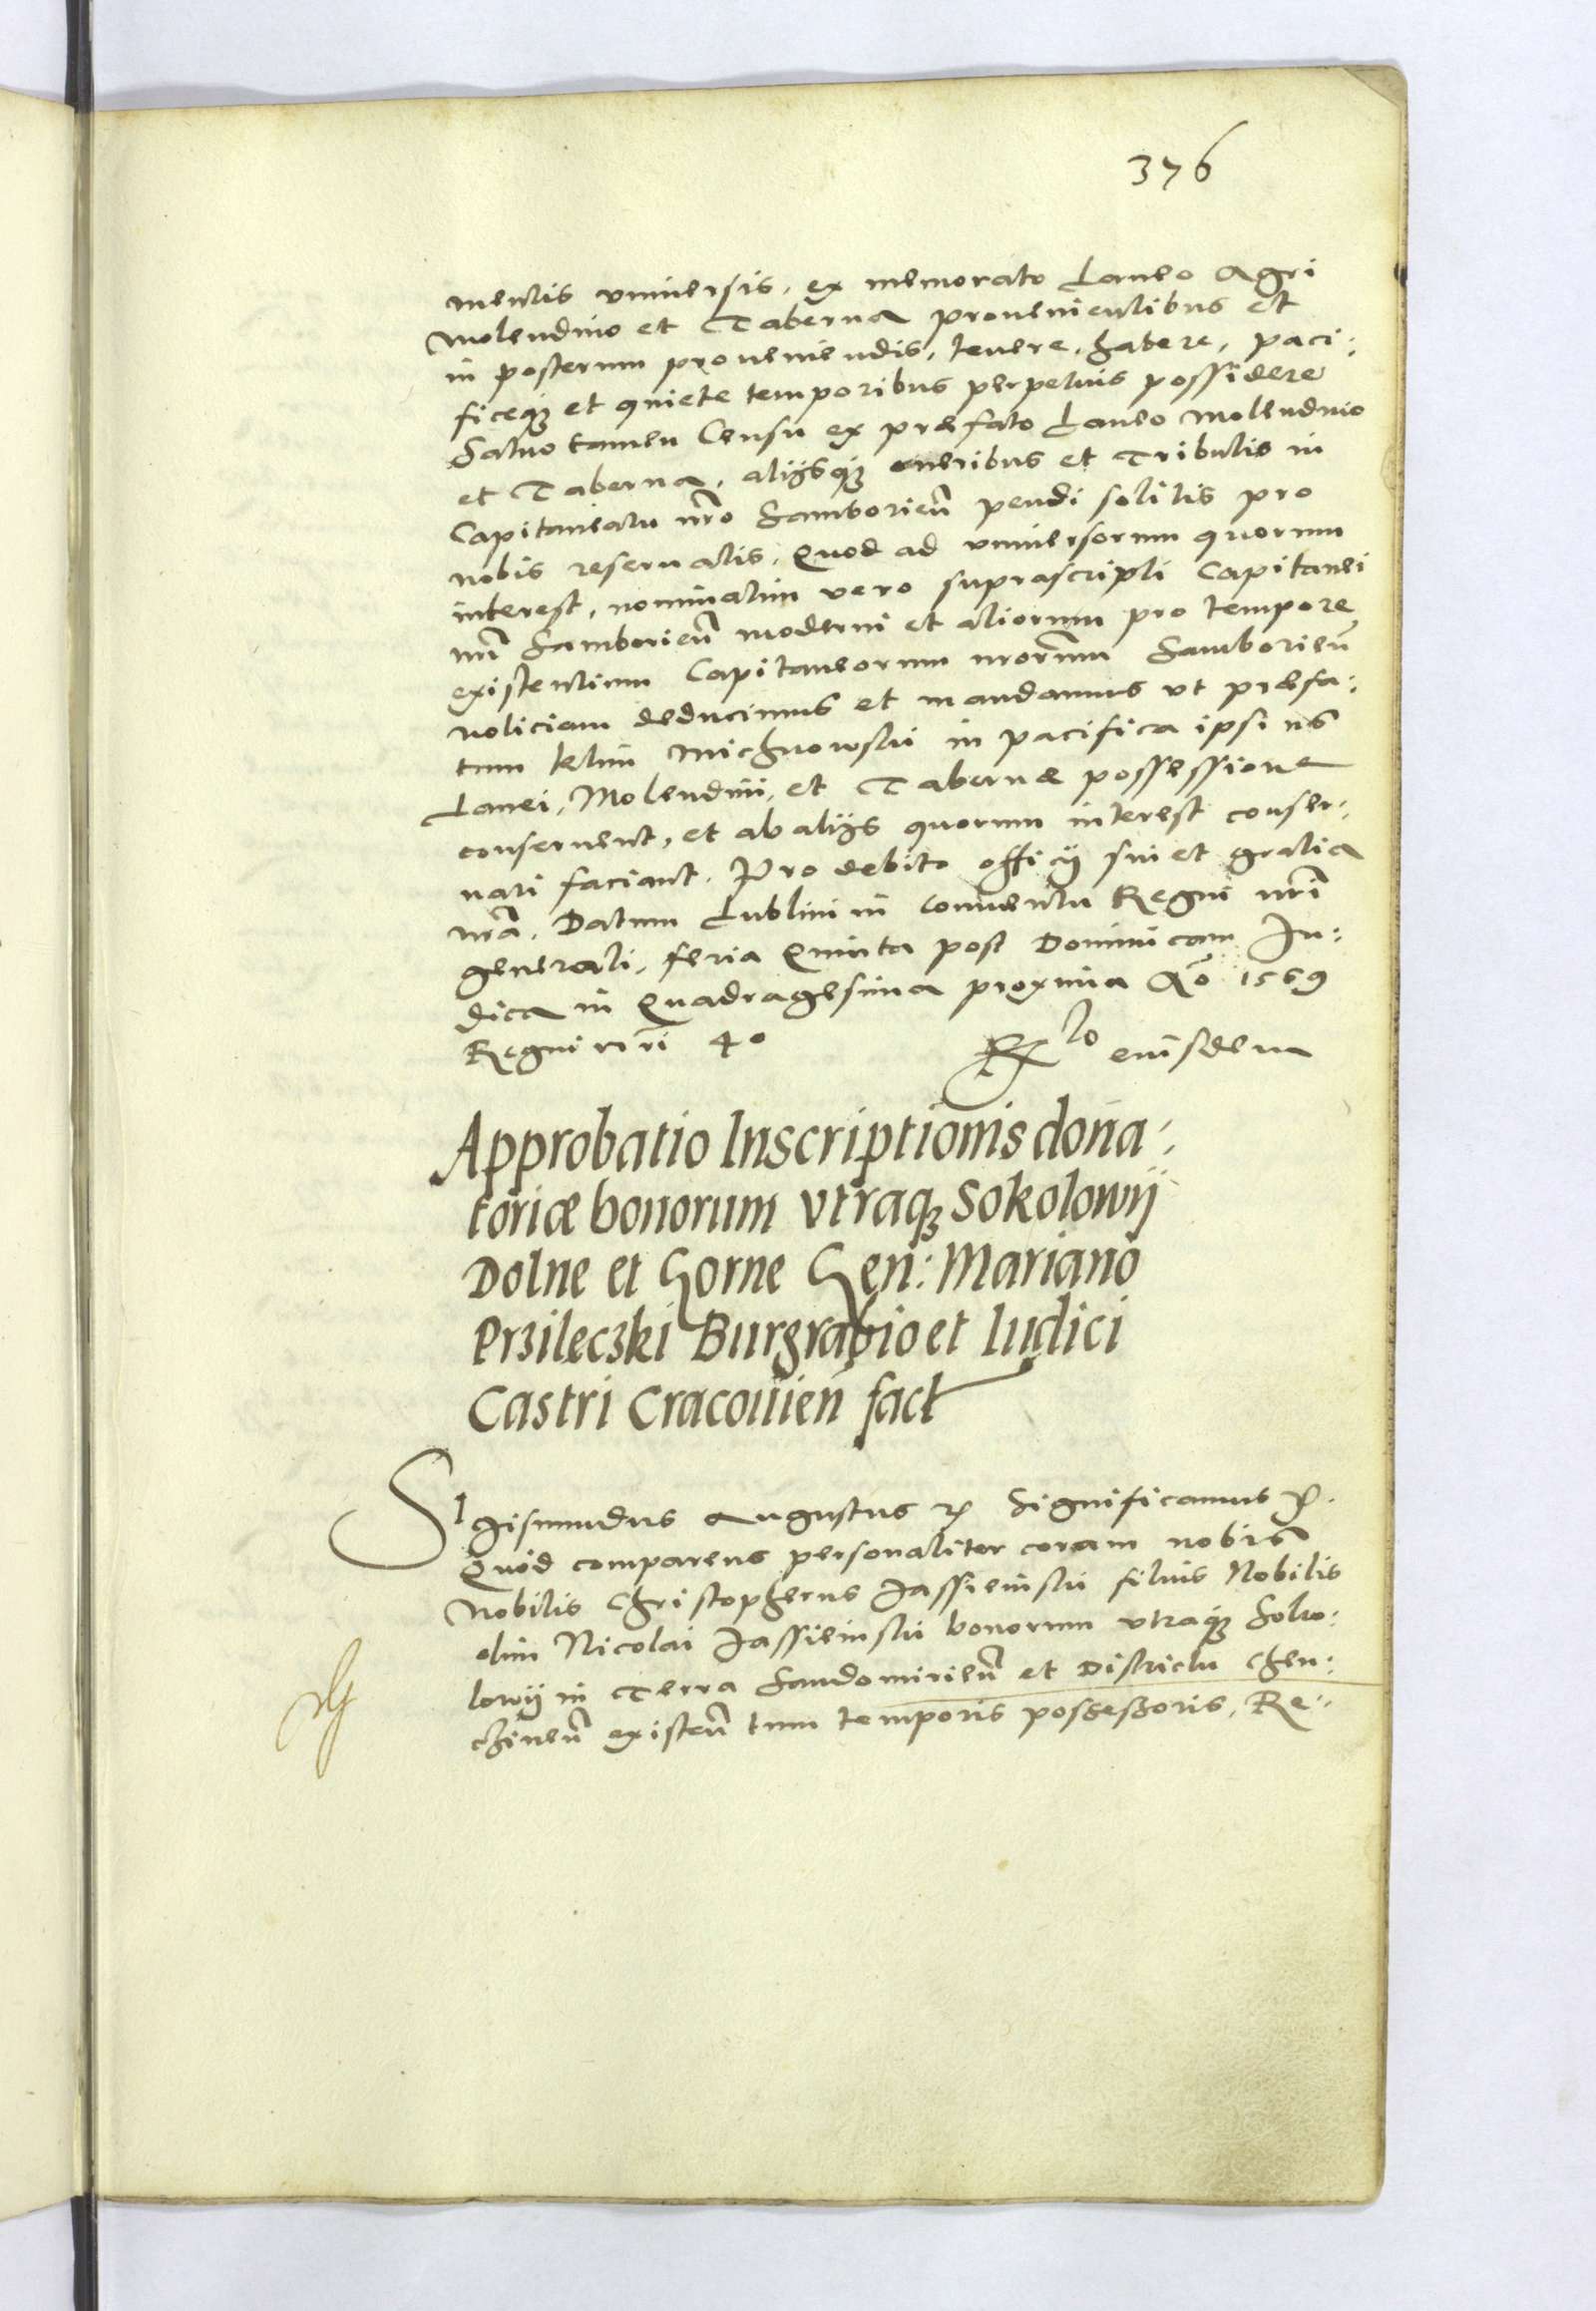 376
mentis vniuersis, ex memorato Laneo Agri
Molendino et Taberna prouenientibus et
in posterum proueniendis, tenere, habere, paci:
ficeq3 et quiete temporibus perpetuis possidere
Saluo tamen Censu ex præfato Laneo Molendino
et Taberna, alijsq3 oneribus et Tributis in
Capitaneatu nro Samborien pendi solitis pro
nobis reseruatis. Quod ad vniuersorum quorum
interest, nominatim vero suprascripti Capitanei
nri Samborien moderni et aliorum pro tempore
existentium Capitaneorum nrorum Samborien
noticiam deducimus et mandamus vt præfa:
tum Klim Michnowski in pacifica ipsius
Lanei, Molendini, et Tabernæ possessione
conseruent, et ab alijs quorum interest conser:
uari faciant. Pro debito officij sui et gratia
nra. Datum Lublini in Conuentu Regni nri
generali, feria Quinta post Dominicam Iu:
dica in Quadragesima proxima Ao 1569
Regni nri 40
Rlo eiusdem
Approbatio Inscriptionis dona:
toriæ bonorum vtraq3 Sokolowij
Dolne et Gorne Gen: Mariano
Przileczki Burgrabio et Iudici
Castri Cracouien fact
Sigismundus Augustus Significamus
Quod comparens personaliter coram nobis
Nobilis Christopherus Jassieinski filius Nobilis
olim Nicolai Jassieinski bonorum vtraq3 Soko:
lowij in Terra Sandomirien et Districtu Chen:
chinen existen tum temporis possessoris, Re: